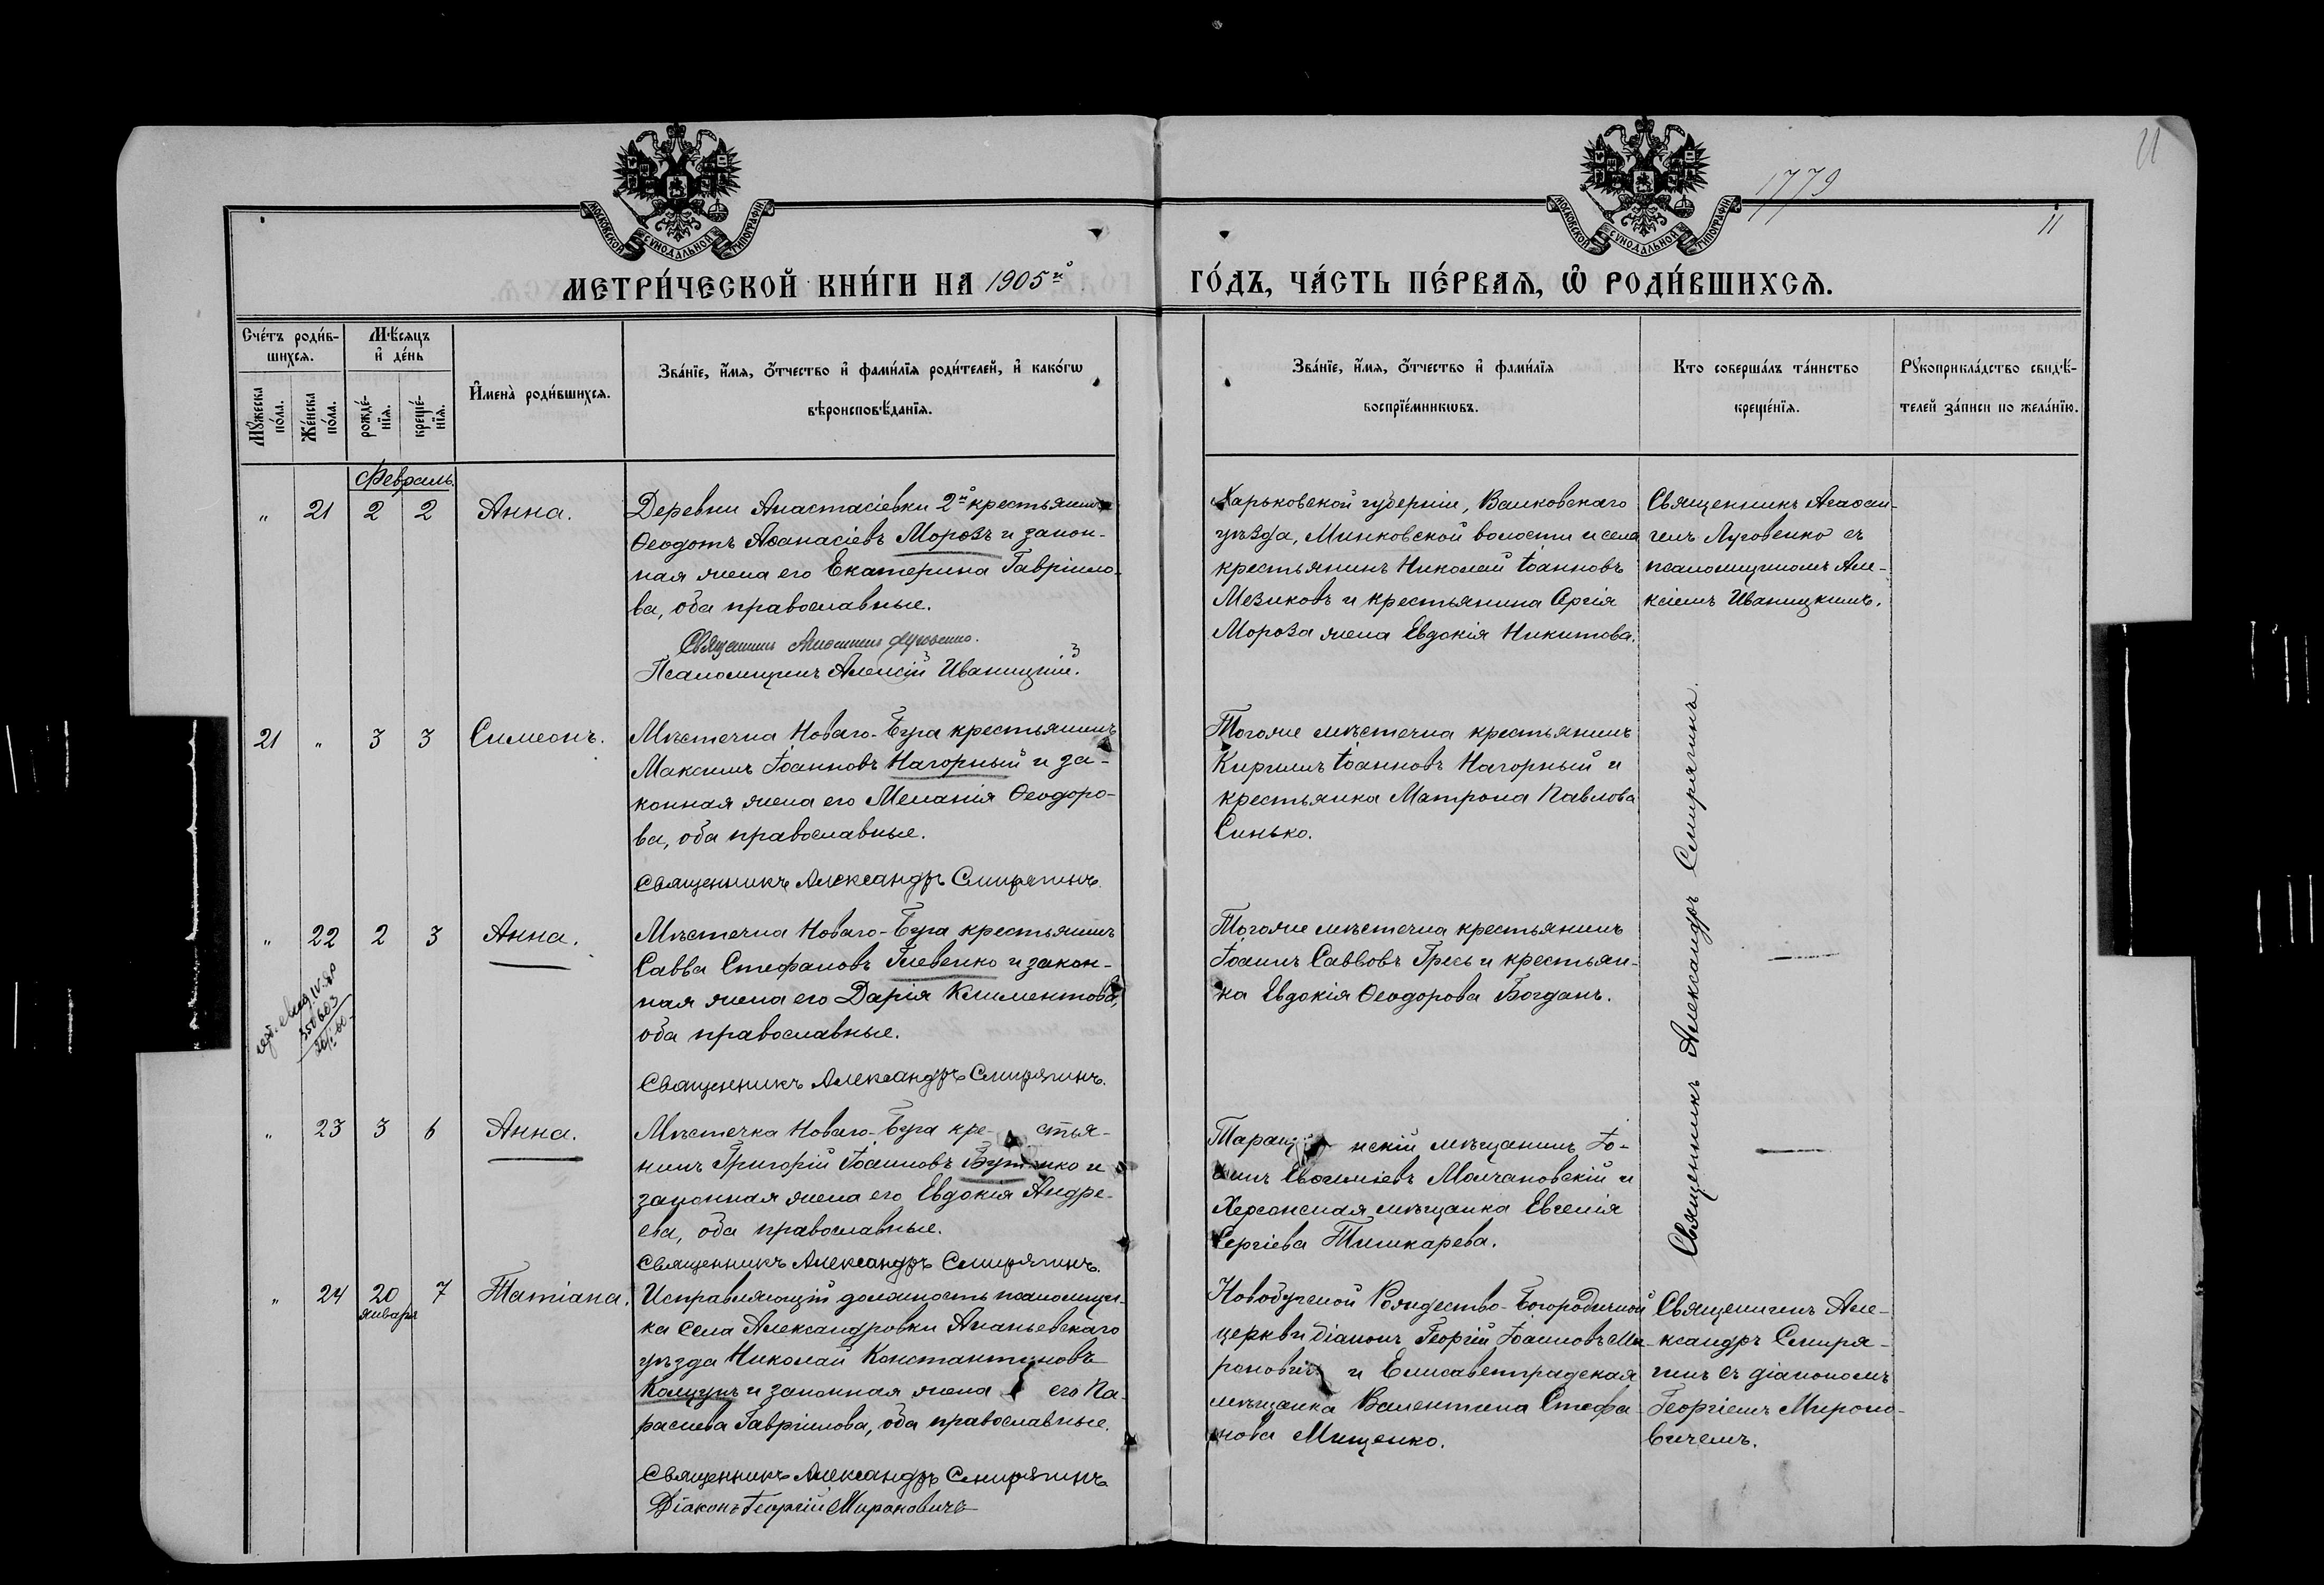 11
1779
11
МОСКОВСКОЙ СУНОДАЛЬНОЙ ТИПОГРАФІИ
МОСКОВСКОЙ СУНОДАЛЬНОЙ ТИПОГРАФІИ
МЕТРИ́ЧЕСКОЙ КНИ́ГИ НА 1905й
ГО́ДЪ, ЧА́СТЬ ПЕ́РВАѦ, Ѡ҆ РОДИ́ВШИХСѦ.
Сче́тъ роди́в-
шихся.
Мѣ́сяцъ
и҆ де́нь
Мꙋ́жеска
по́ла.
Же́нска
по́ла.
рожде́-
нїя.
креще́-
нїя.
И҆мена̀ роди́вшихся.
Зва́нїе, и҆́мя, ѻ҆́тчество и҆ фами́лїя роди́телей, и҆ како́гѡ
вѣроисповѣ́данїя.
Зва́нїе, и҆́мя, ѻ҆́тчество и҆ фами́лїя
воспрїе́мникѡвъ.
Кто соверша́лъ та́инство
креще́нїя.
Рꙋкоприкла́дство свидѣ́-
телей за́писи по жела́нїю.
Февраль.
" 21 2 2 Анна.
Деревни Анастасіевки 2й крестьянинъ
Ѳеодотъ Аѳанасіевъ Морозъ и закон-
ная жена его Екатерина Гавріило-
ва, оба православные.
Священникъ Луговенко.
Псаломщикъ Алексій Иваницкій.
Харьковской губерніи, Валковскаго
уѣзда, Минковской волости и села
крестьянинъ Николай Іоанновъ
Мезиковъ и крестьянина Сергія
Мороза жена Евдокія Никитова.
Священникъ Агаѳан-
гелъ Луговенко съ
псаломщикомъ Але-
ксіемъ Иваницкимъ.
21 " 3 3 Симеонъ.
Мѣстечка Новаго-Буга крестьянинъ
Максимъ Іоанновъ Нагорный и за-
конная жена его Меланія Ѳеодоро-
ва, оба православные.
Священникъ Александръ Смирягинъ.
Тогоже мѣстечка крестьянинъ
Кириллъ Іоанновъ Нагорный и
крестьянка Матрона Павлова
Синько.
Священникъ Александръ Смирягинъ.
" 22 2 3 Анна.
350603
Мѣстечка Новаго-Буга крестьянинъ
Савва Стефановъ Гневенко и закон-
ная жена его Дарія Климентова,
оба православные.
Священникъ Александръ Смирягинъ.
Тогоже мѣстечка крестьянинъ
Іоаннъ Саввовъ Гресь и крестьян-
ка Евдокія Ѳеодорова Богданъ.
" 23 3 6 Анна.
Мѣстечка Новаго-Буга кре- стья-
нинъ Григорій Іоанновъ и
законная жена его Евдокія Андре-
ева, оба православные.
Священникъ Александръ Смирягинъ.
нскій мѣщанинъ Іо-
аннъ Евѳиміевъ Молчановскій и
Херсонская мѣщанка Евгенія
Сергіева Тишкарева.
" 24 20 января 7 Татіана.
Исправляющій должность псаломщи-
ка села Александровки Ананьевскаго
уѣзда Николай Константиновъ
и законная жена его Па-
раскева Гавріилова, оба православные.
Священникъ Александръ Смирягинъ
Діаконъ Георгій Мироновичъ
Новобугской Рождество-Богородичной
церкви діаконъ Георгій Іоанновъ Ми-
роновичъ и Елисаветградская
мѣщанка Валентина Стефа-
нова Мищенко.
Священникъ Але-
ксандръ Смиря-
гинъ съ діакономъ
Георгіемъ Мироно-
вичемъ.